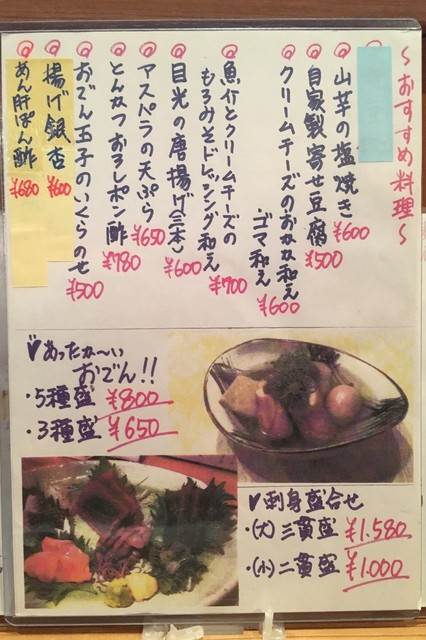 ～おすすめ料理～
山芋の塩焼き
¥600
自家製寄せ豆腐
¥500
クリームチーズのおかか和え
ゴマ和え
¥600
魚介とクリームチーズの
もろみそドレッシング和え
¥700
目光の唐揚げ(三本)
¥600
アスパラの天ぷら
¥650
とんかつおろしポン酢
¥780
おでん玉子のいくらのせ
¥500
揚げ銀杏
¥600
あん肝ぽん酢
¥680
あったか〜い
おでん!!
・5種盛 ¥800
・3種盛 ¥650
刺身盛合せ
・(大)三貫盛 ¥1.580
・(小)二貫盛 ¥1.000